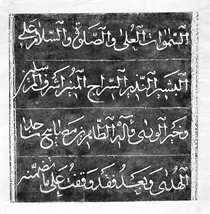 السموات العلى والصلوة والسلام على
البشير النذير السراج المنير اشرف
وخير الورى وآله الطاهرين مصابيح
الهدى وبعد فقد وقفت على